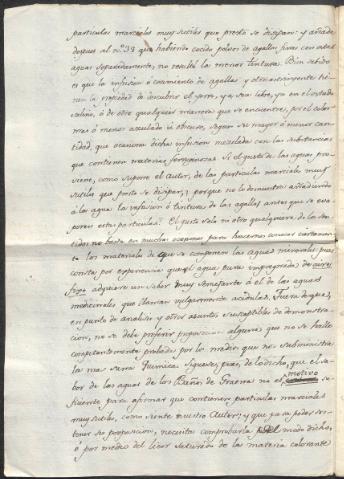 particulas marciales muy sutiles que presto se disipan: y añade
despues al nº 33 que habiendo cocido polvos de agallas finas con estas
aguas separadamente, no recibió la menor tintura. Bien sabido
es que la infusion ó cocimiento de agallas y otros astringentes tie-
nen la propiedad de descubrir el yerro, ya sea libre, ya en el estado
salino, ó de otra qualquiera manera que se encuentre, por el color
mas ó menos azulado ú obscuro, segun su mayor ó menor can-
tidad, que ocasionan dichas infusiones mezcladas con las substancias
que contienen materias ferruginosas. Si el gusto de las aguas pro-
viene, como supone el Autor, de las particulas marciales muy
sutiles que presto se disipan, porque no lo demuestra añadiendo
á las aguas la infusion ó tintura de las agallas antes que se eva-
poren estas particulas? El gusto solo ni otro qualquiera de los sen-
tidos no basta en muchas ocasiones para hacernos conocer ciertamen-
te los materiales de que se componen las aguas minerales pues
consta por experiencia que el agua pura impregnada de ayre
fixo adquiere un sabor muy semejante á el de las aguas
medicinales que llaman vulgarmente acidulas. Fuera de que,
en punto de analisis y otros asuntos susceptibles de demostra-
cion, no se debe proferir proposicion alguna que no se halle
completamente probada por los medios que nos subministra
la mas sana Quimica. Siguese pues, de lo dicho, que el sa-
bor de las aguas de los Baños de Graena no es motivo
suficiente para afirmar que contienen particulas marciales
muy sutiles, como siente nuestro Autor; y que para poder sos-
tener su proposicion, necesita comprobarla del modo dicho,
ó por medio del licor saturado de la materia colorante